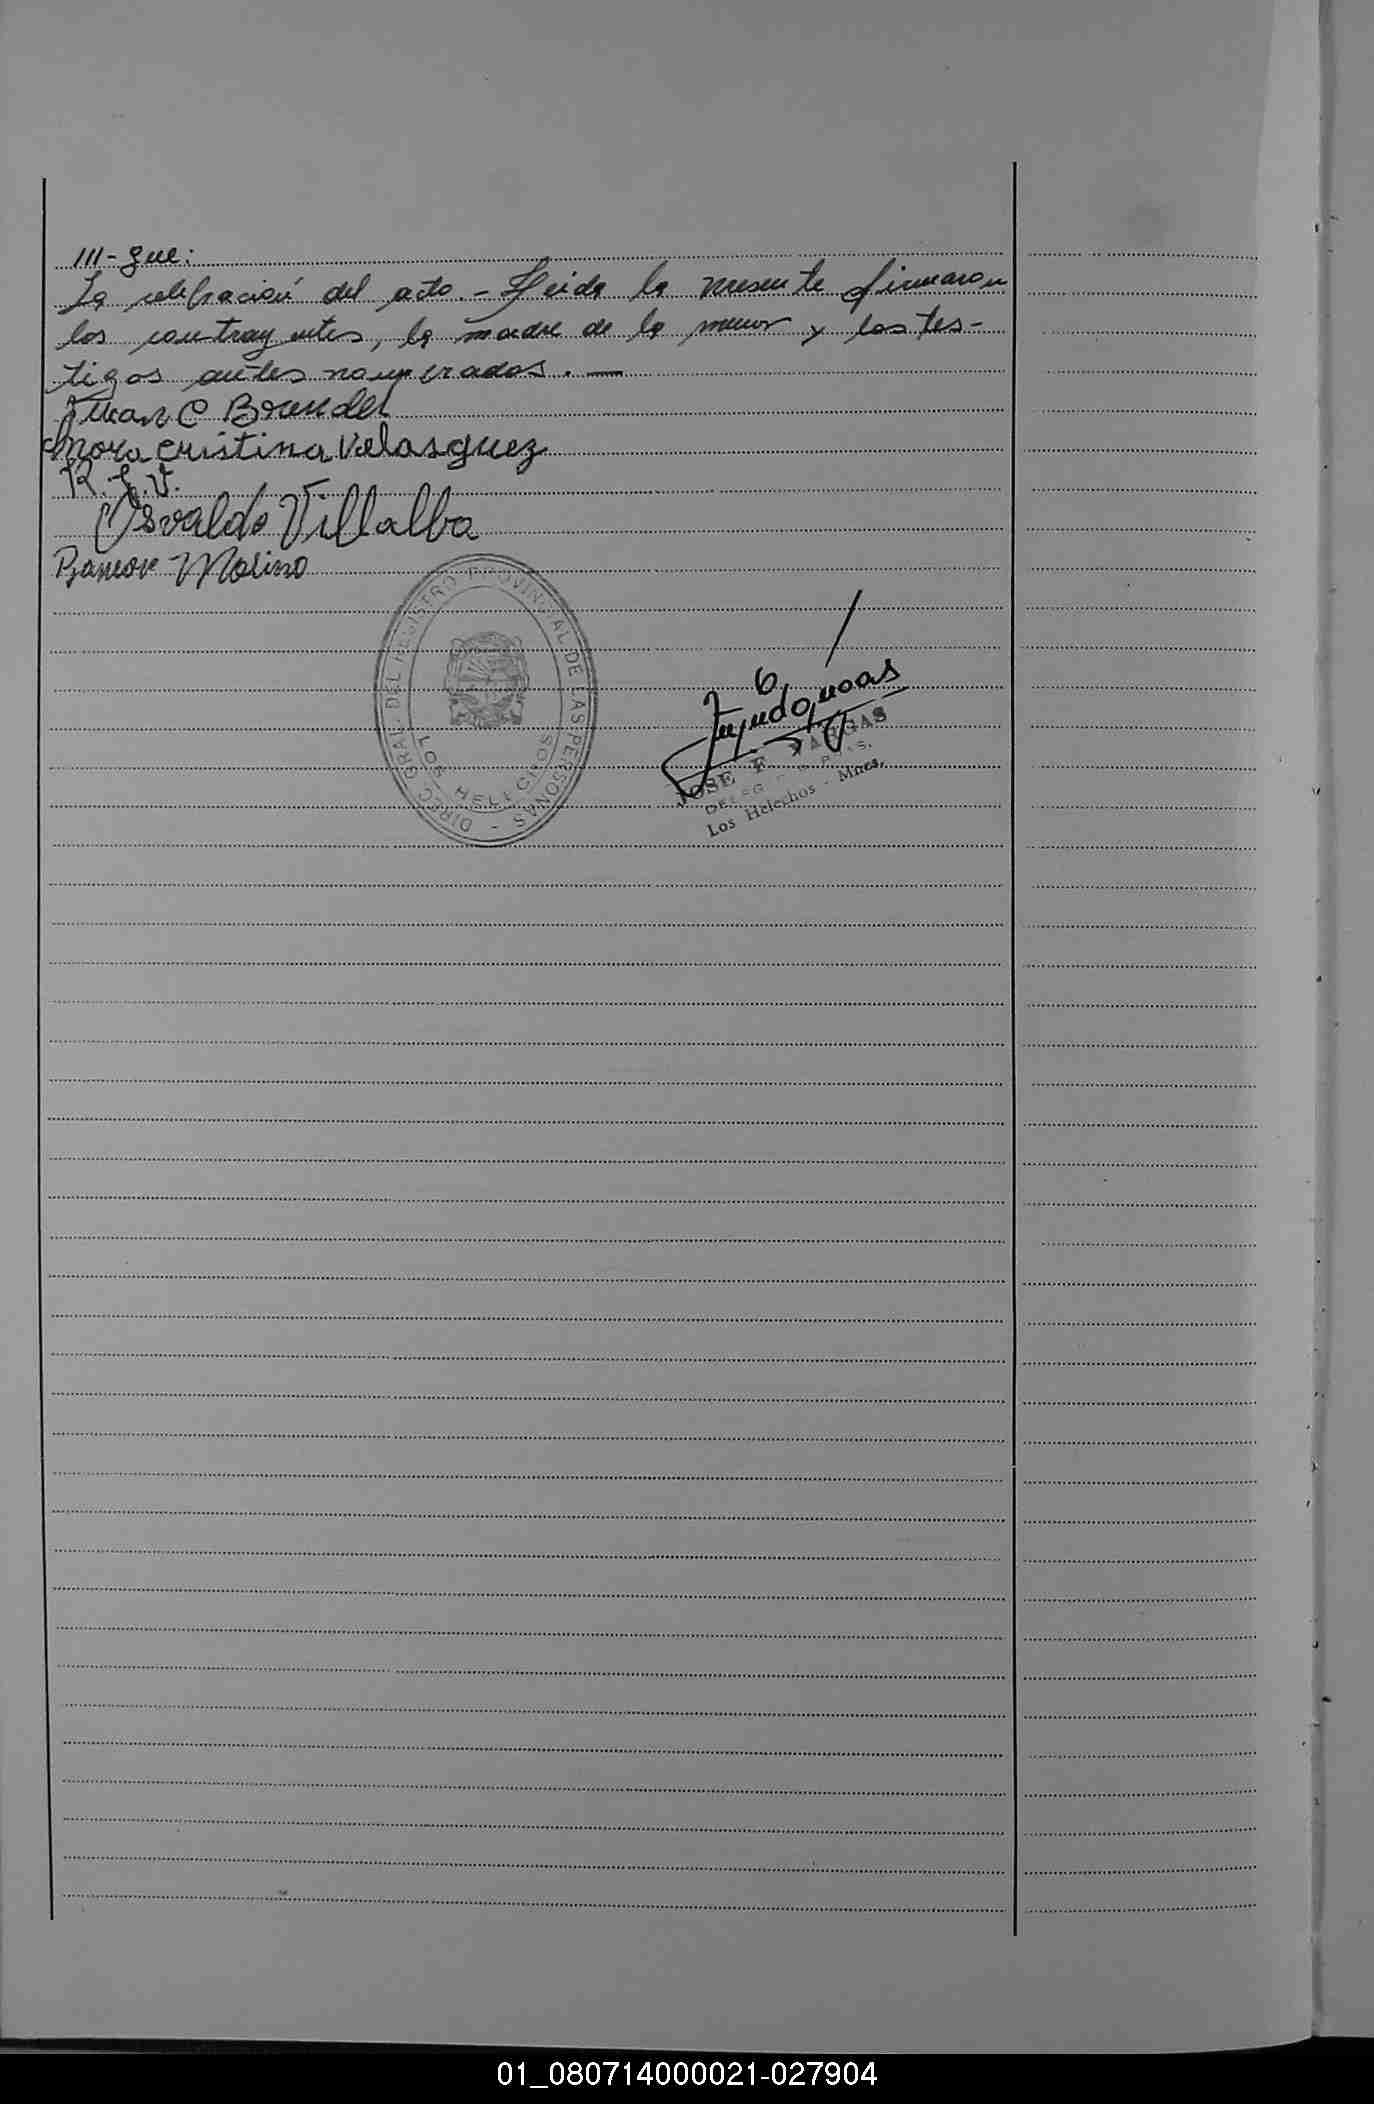 III-gue:
La celebración del acto.- Leida la presente firmaron
los contrayentes, la madre de la menor y los tes-
tigos antes nombrados. —
Juan C Brendel
Nora Cristina Velasquez
R. L. V.
Osvaldo Villalba
Ramon Molino
DIREC. GRAL. DEL REGISTRO PROVINCIAL DE LAS PERSONAS -
LOS HELECHOS
JOSE F. VARGAS
Los Helechos - Mnes.
01_080714000021-027904